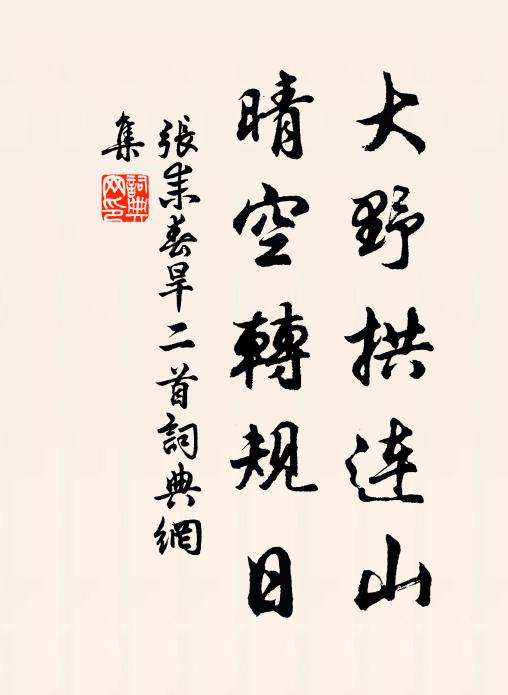 大野拱連山
晴空轉規日
張耒春旱二首詞典網
集
詞典
網印